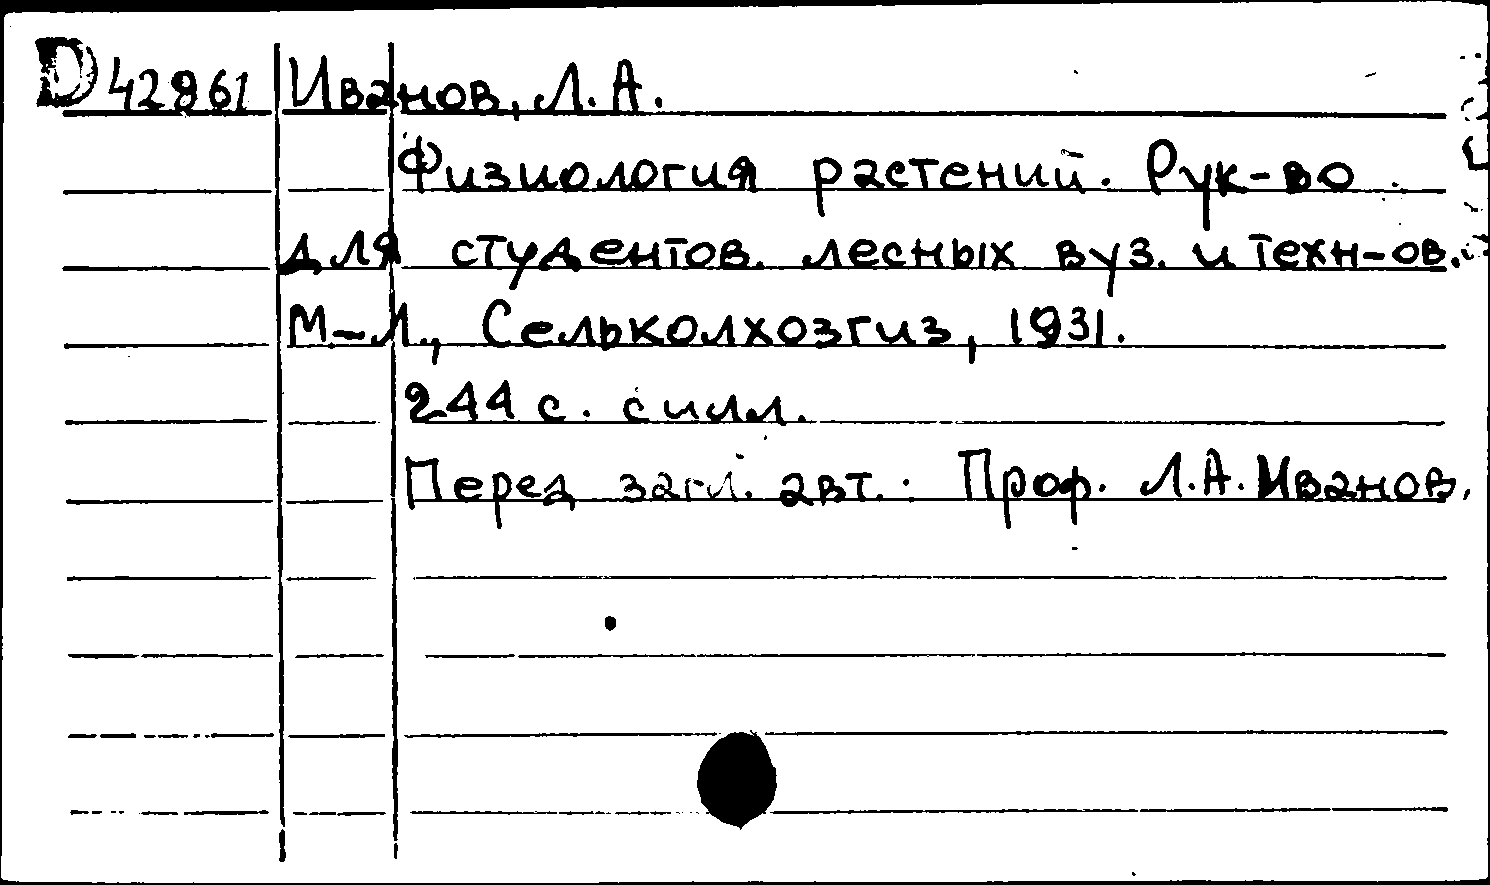 D 42861 Иванов, Л. А.
Физиология растений. Рук-во
для студентов лесных вуз. и техн-ов.
М-Л., Сельколхозгиз, 1931.
244 с. с илл.
Перед загл. авт.: Проф. Л.А. Иванов.